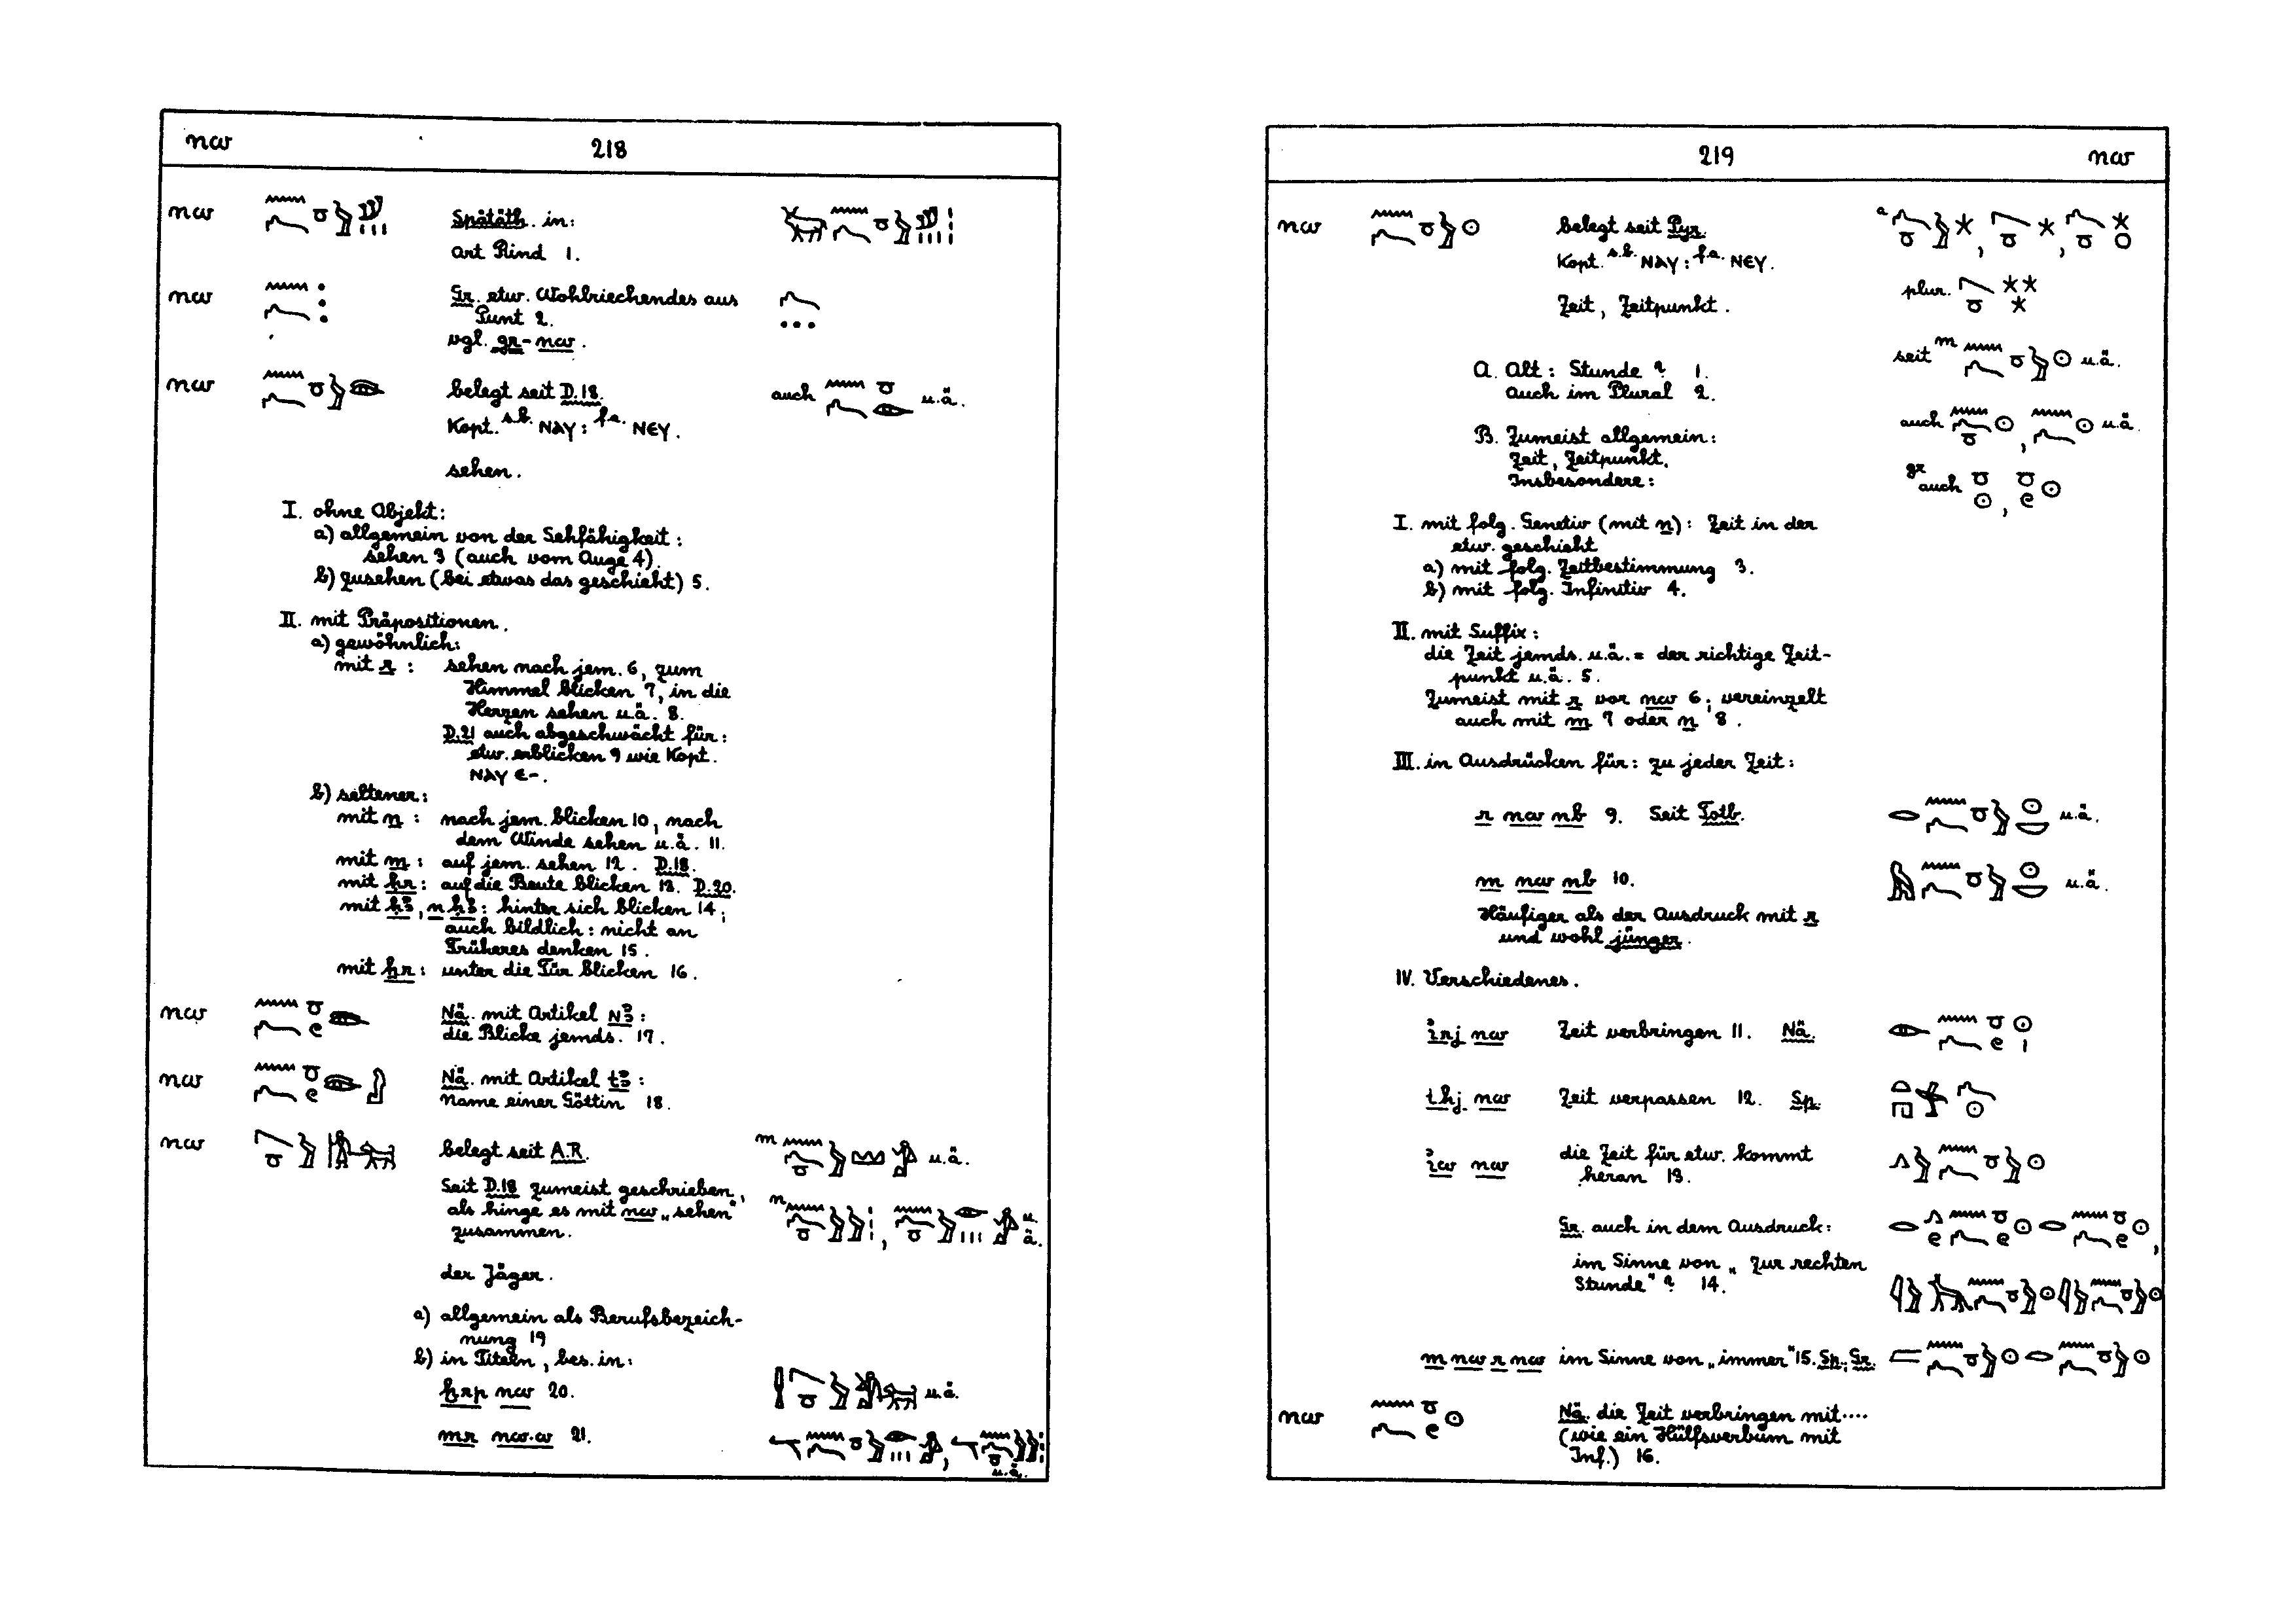 nw 218
nw Spätäth. in:
Art Rind 1.
nw Gr. etw. Wohlriechendes aus
Punt 2.
vgl. gr-nw.
nw belegt seit D.18. auch u.ä.
Kopt. s.b. ⲚⲀⲨ: f.a. ⲚⲈⲨ.
sehen.
I. ohne Objekt:
a) allgemein von der Sehfähigkeit:
sehen 3 (auch vom Auge 4).
b) zusehen (bei etwas das geschieht) 5.
II. mit Präpositionen.
a) gewöhnlich:
mit r: sehen nach jem. 6, zum
Himmel blicken 7, in die
Herzen sehen u.ä. 8.
D.21 auch abgeschwächt für:
etw. erblicken 9 wie Kopt.
ⲚⲀⲨ Ⲉ-.
b) seltener:
mit n: nach jem. blicken 10, nach
dem Winde sehen u.ä. 11.
mit m: auf jem. sehen 12. D.18.
mit ḥr: auf die Beute blicken 13. D.20.
mit ḥꜣ, n ḥꜣ: hinter sich blicken 14;
auch bildlich: nicht an
Früheres denken 15.
mit ẖr: unter die Tür blicken 16.
nw Nä. mit Artikel nꜣ:
die Blicke jemds. 17.
nw Nä. mit Artikel tꜣ:
Name einer Göttin 18.
nw belegt seit A.R. m u.ä.
Seit D.18 zumeist geschrieben,
als hinge es mit nw „sehen" n u.
zusammen. ä.
der Jäger.
a) allgemein als Berufsbezeich-
nung 19
b) in Titeln, bes. in:
ḫrp nw 20. u.ä.
mr nw.w 21.
u.ä.
219 nw
nw belegt seit Pyr. a
Kopt. s.b. ⲚⲀⲨ: f.a. ⲚⲈⲨ.
Zeit, Zeitpunkt. plur.
seit m u.ä.
A. Alt: Stunde? 1.
Auch im Plural 2.
auch u.ä.
B. Zumeist allgemein:
Zeit, Zeitpunkt.
Insbesondere: gr auch
I. mit folg. Genetiv (mit n): Zeit in der
etw. geschieht
a) mit folg. Zeitbestimmung 3.
b) mit folg. Infinitiv 4.
II. mit Suffix:
die Zeit jemds. u.ä. = der richtige Zeit-
punkt u.ä. 5.
Zumeist mit r vor nw 6; vereinzelt
auch mit m 7 oder n 8.
III. in Ausdrücken für: zu jeder Zeit:
r nw nb 9. Seit Totb. u.ä.
m nw nb 10. u.ä.
Häufiger als der Ausdruck mit r
und wohl jünger.
IV. Verschiedenes.
ı͗rj nw Zeit verbringen 11. Nä.
thj nw Zeit verpassen 12. Sp.
ı͗w nw die Zeit für etw. kommt
heran 13.
Gr. auch in dem Ausdruck:
im Sinne von „zur rechten
Stunde"? 14.
m nw r nw im Sinne von „immer" 15. Sp., Gr.
nw Nä. die Zeit verbringen mit....
(wie ein Hülfsverbum mit
Inf.) 16.